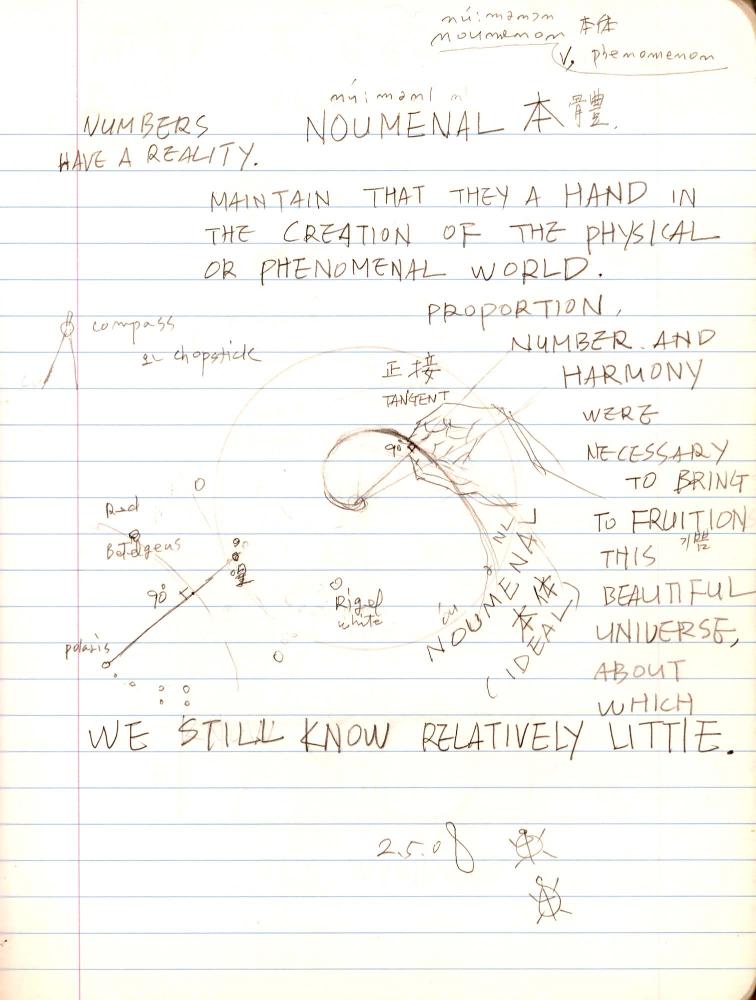 nú:mənən
noumenon 本体
v. phenomenon
nú:mənl n
NOUMENAL 本體.
NUMBERS
HAVE A REALITY.
MAINTAIN THAT THEY A HAND IN
THE CREATION OF THE PHYSICAL
OR PHENOMENAL WORLD.
PROPORTION,
NUMBER AND
HARMONY
WERE
NECESSARY
TO BRING
TO FRUITION
기쁨
THIS
BEAUTIFUL
UNIVERSE,
ABOUT
WHICH
WE STILL KNOW RELATIVELY LITTLE.
compass
or chopstick
正接
TANGENT
90°
Red
Betelgeus
90°
polaris
Rigel
white
NL
NOUMENAL
本体
(IDEAL)
2.5.08